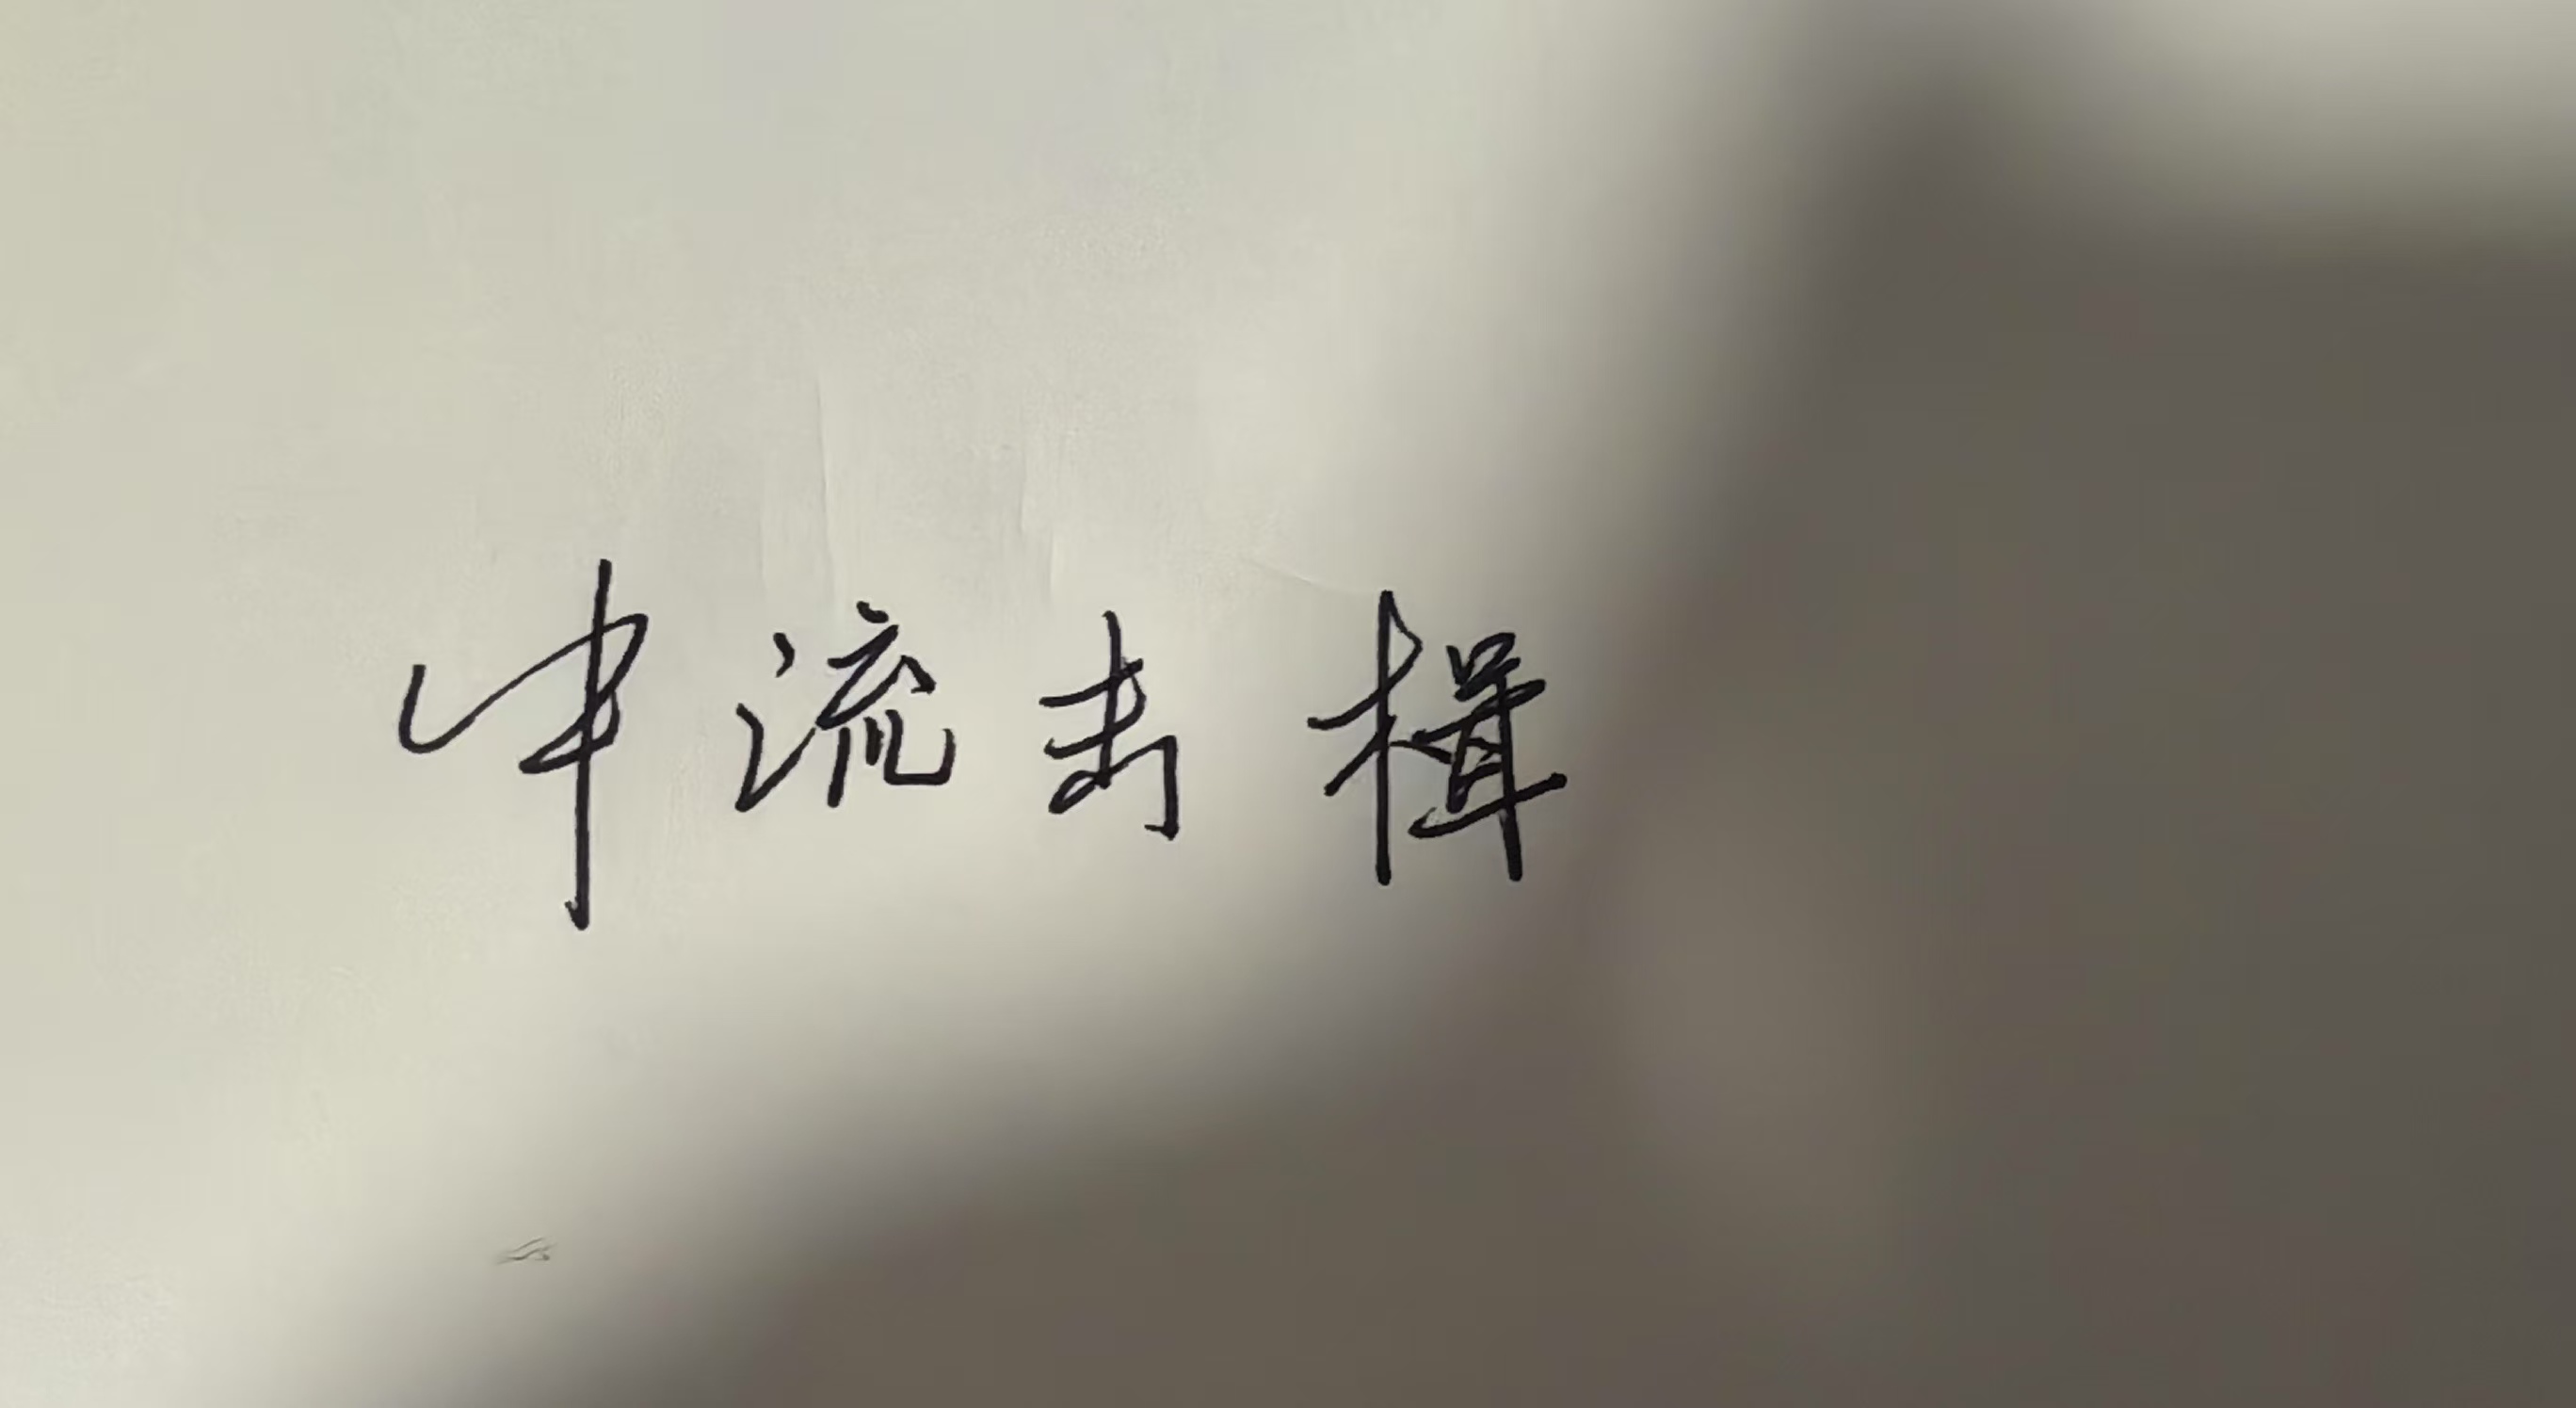 中流击楫